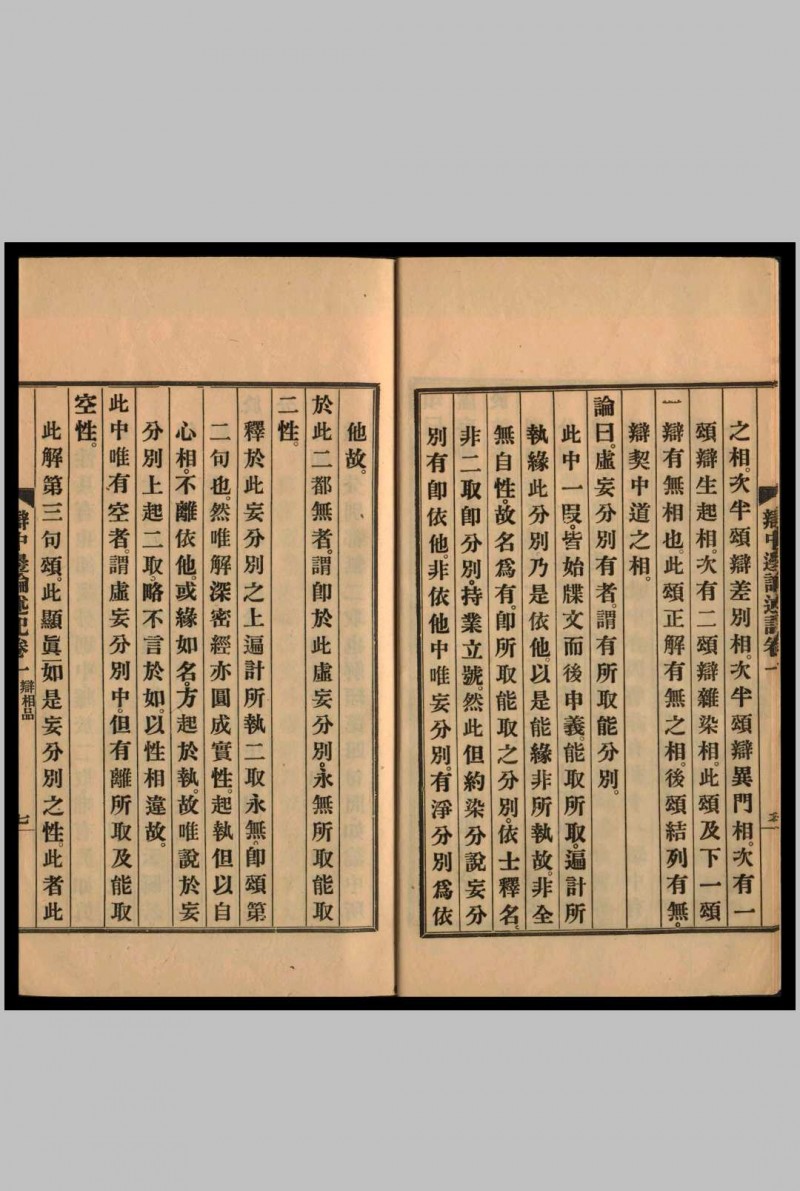 之相。次半頌辯差別相。次半頌辯異門相。次有一
頌辯生起相。次有二頌辯雜染相。此頌及下一頌
辯有無相也。此頌正解有無之相。後頌結列有無。
辯契中道之相。
論曰。虛妄分別有者。謂有所取能分別。
此中一段。皆始牒文而後申義。能取所取。遍計所
執緣此分別乃是依他。以是能緣非所執故。非全
無自性。故名爲有。卽所取能取之分別。依士釋名。
非二取卽分別。持業立號。然此但約染分說妄分
別有卽依他。非依他中唯妄分別。有淨分別爲依
他故。
於此二都無者。謂卽於此虛妄分別。永無所取能取
二性。
釋於此妄分別之上遍計所執二取永無。卽頌第
二句也。然唯解深密經亦圓成實性。起執但以自
心相。不離依他。或緣如名。方起於執。故唯說於妄
分別上起二取。略不言於如。以性相違故。
此中唯有空者。謂虛妄分別中。但有離所取及能取
空性。
此解第三句頌。此顯眞如是妄分別之性。此者此
辯中邊論述記卷一 辯相品
七